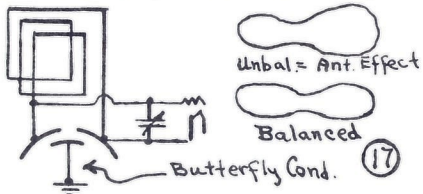 Unbal. = Ant. Effect
Balanced
Butterfly Cond.
17